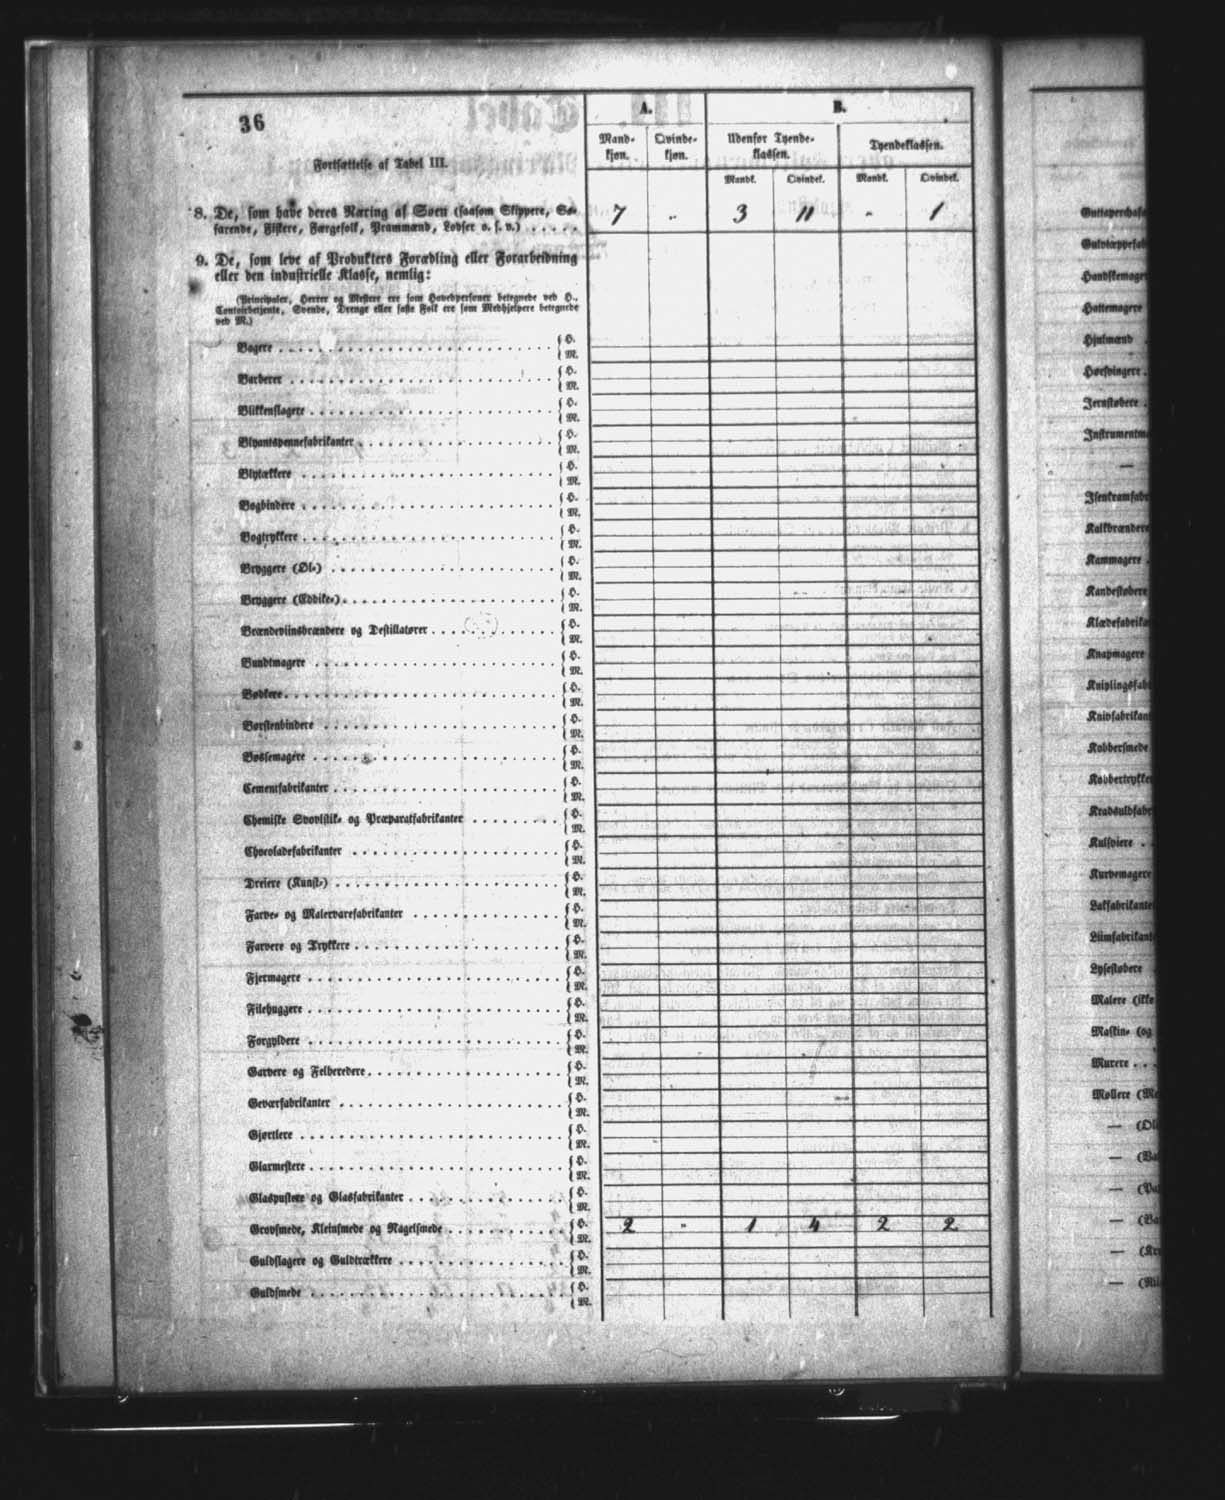 36
Fortsættelse af Tabel III.
A.
B.
Mand-
kjøn.
Qvinde-
kjøn.
Udenfor Tyende-
klassen.
Tyendeklassen.
Mandk.
Qvindek.
Mandk.
Qvindek.
8. De, som have deres Næring af Søen (saasom Skippere, Sø-
farende, Fiskere, Færgefolk, Prammænd, Lodser o. s. v.) . . . . . 7 „ 3 11 „ 1
9. De, som leve af Produkters Forædling eller Forarbeidning
eller den industrielle Klasse, nemlig:
(Principaler, Herrer og Mestere ere som Hovedpersoner betegnede ved H.,
Contoirbetjente, Svende, Drenge eller faste Folk ere som Medhjelpere betegnede
ved M.)
Bagere H.
M.
Barberer H.
M.
Blikkenslagere H.
M.
Blyantspennefabrikanter H.
M.
Blytækkere H.
M.
Bogbindere H.
M.
Bogtrykkere H.
M.
Bryggere (Øl-) H.
M.
Bryggere (Eddike-) H.
M.
Brændeviinsbrændere og Destillatører H.
M.
Bundtmagere H.
M.
Bødkere H.
M.
Børstenbindere H.
M.
Bøssemagere H.
M.
Cementfabrikanter H.
M.
Chemiske Svovlstik- og Præparatfabrikanter H.
M.
Chocoladefabrikanter H.
M.
Dreiere (Kunst-) H.
M.
Farve- og Malervarefabrikanter H.
M.
Farvere og Trykkere H.
M.
Fjermagere H.
M.
Filehuggere H.
M.
Forgyldere H.
M.
Garvere og Felberedere H.
M.
Geværfabrikanter H.
M.
Gjørtlere H.
M.
Glarmestere H.
M.
Glaspustere og Glasfabrikanter H.
M.
Grovsmede, Kleinsmede og Nagelsmede H. 2 „ 1 4 2 2
M.
Guldslagere og Guldtrækkere H.
M.
Guldsmede H.
M.
Handskemager
Hattemagere
Hjulmænd
Hørsvingere
Jernstøbere
—
Kalkbrændere
Kammagere
Kandestøbere
Knapmagere
Kobbersmede
Kulsviere
Kurvemagere
Lysestøbere
Malere (ikke
Maskin- (og
Murere
—
—
—
—
—
—